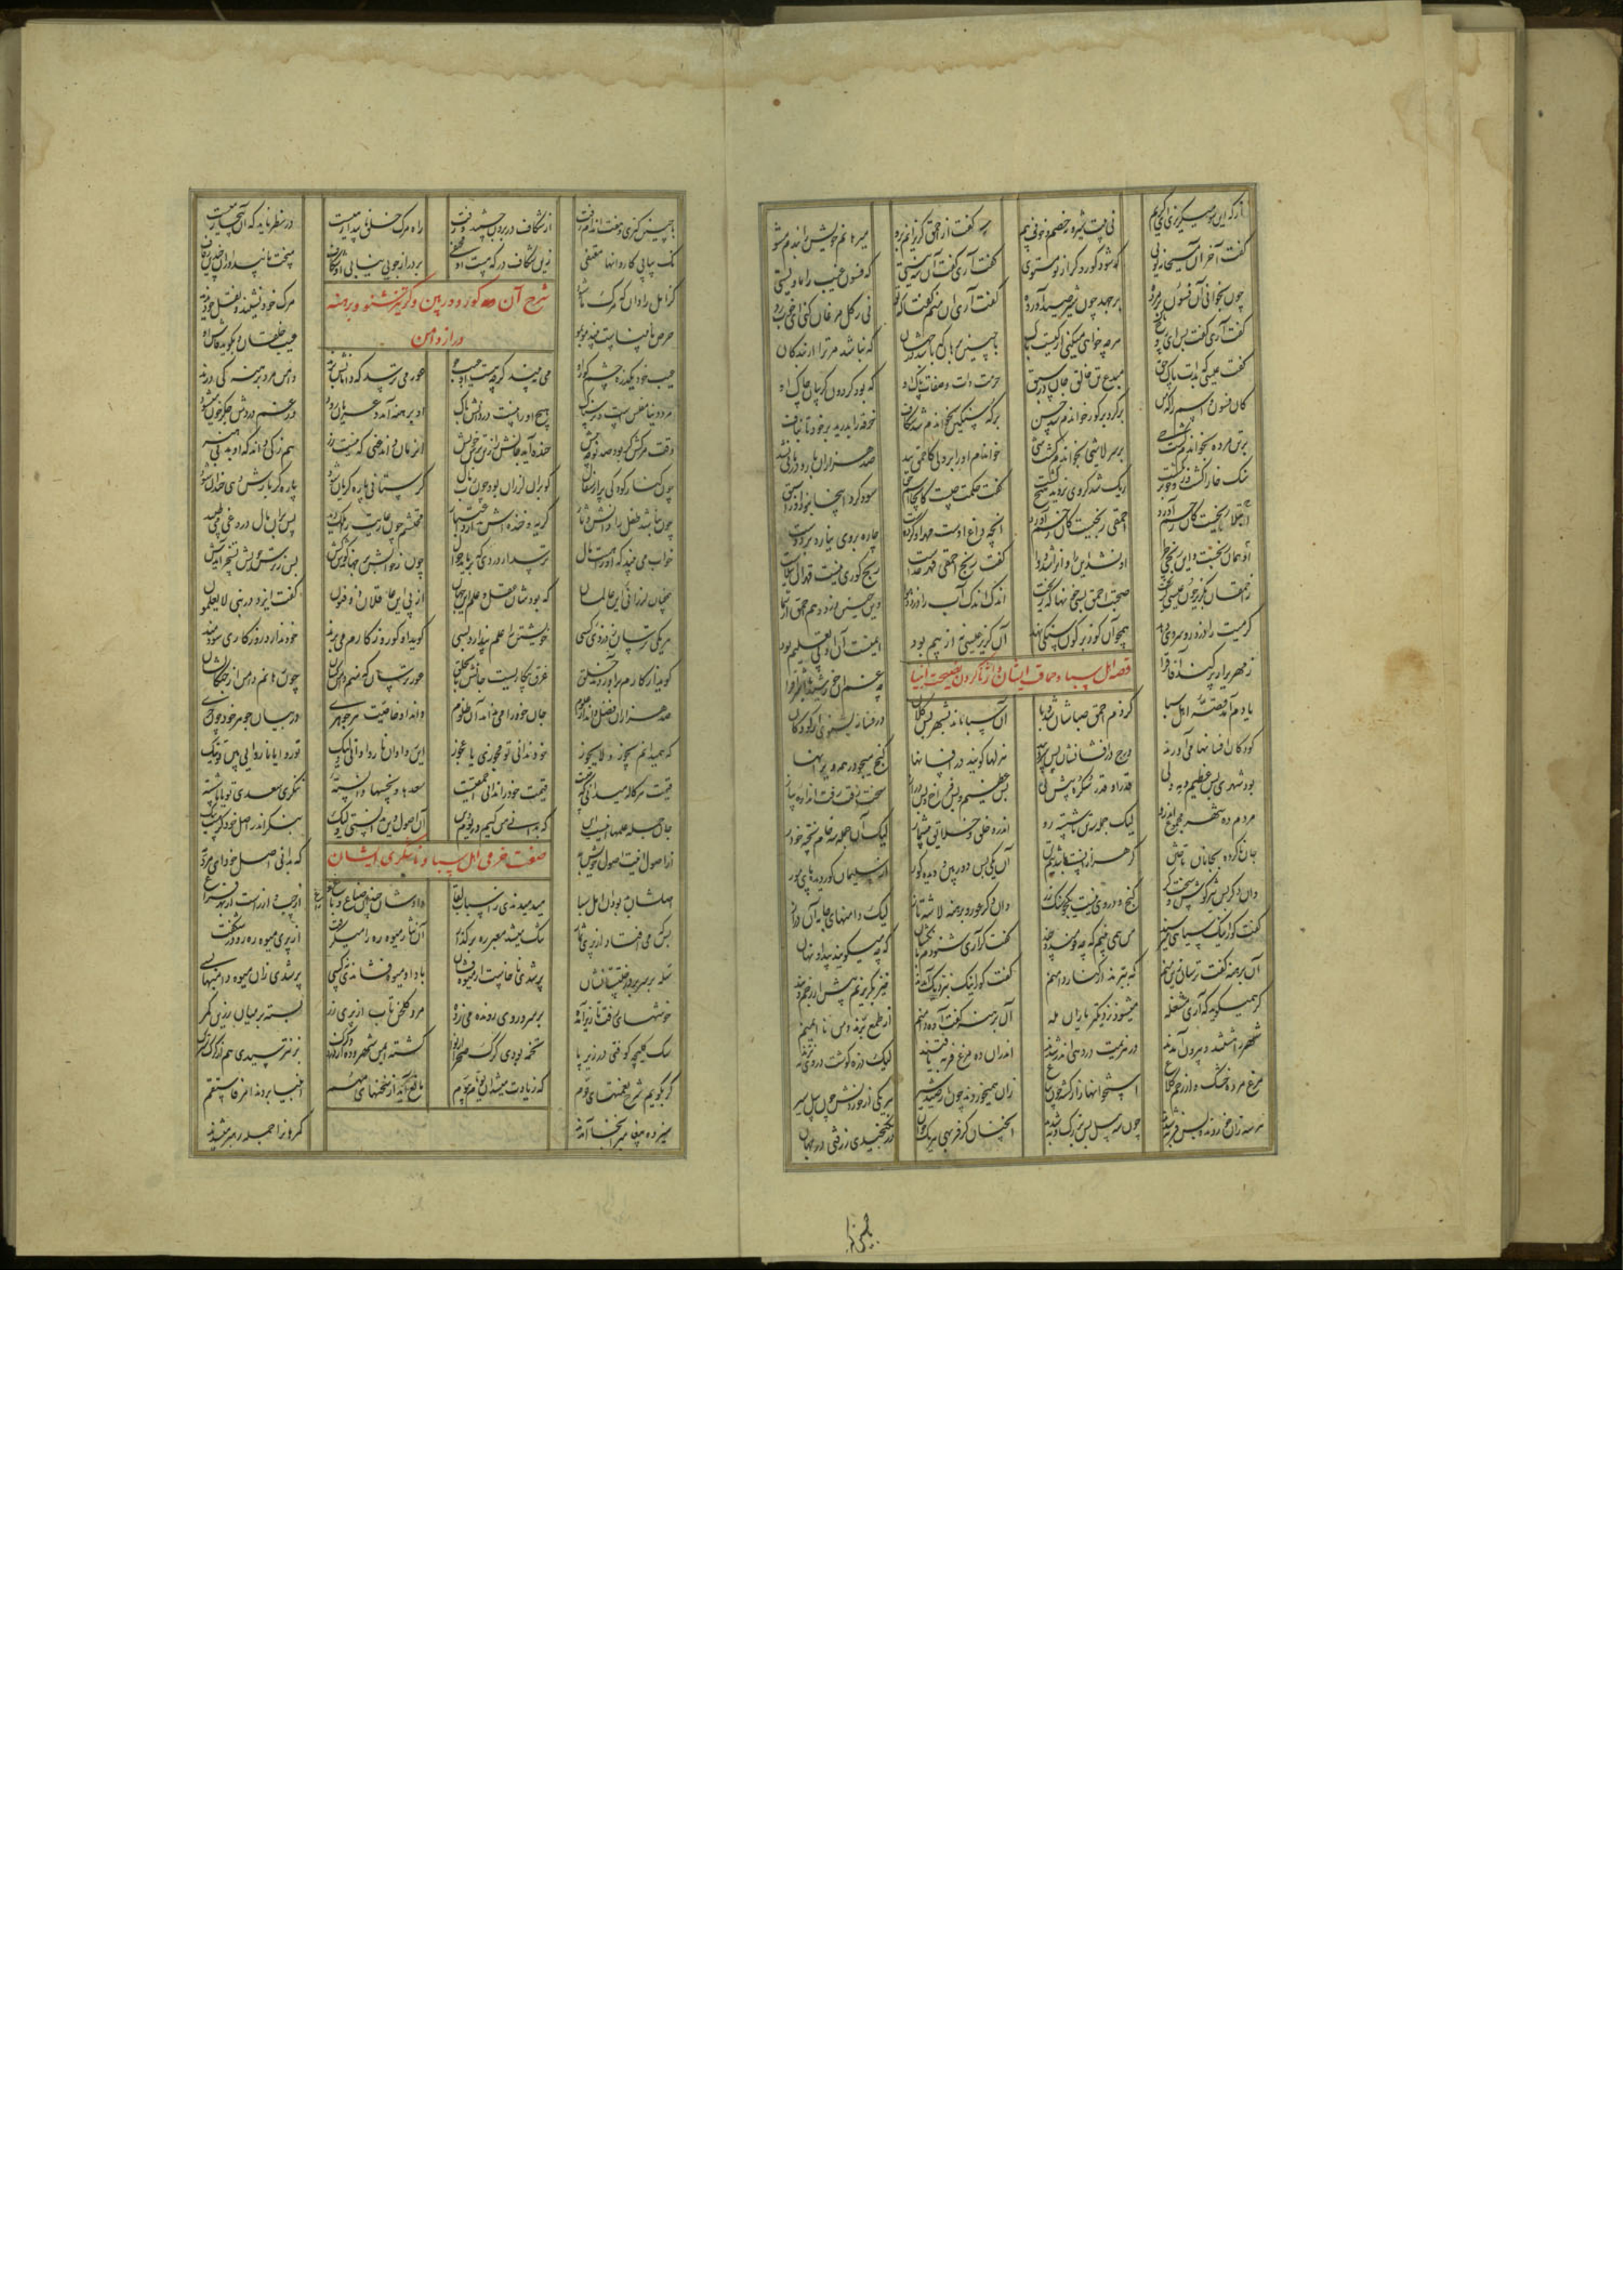 از که این سو میگریزی ای کریم نی پیت شیر و نه خصم و خوف و بیم گفت از احمق گریزانم برو میرهانم خویش را بندم مشو
گفت آخر آن مسیحا نه توئی که شود کور و کر از تو مستوی گفت آری گفت آن شه نیستی که فسون غیب را ماویستی
چون بخوانی آن فسون بر مرده برجهد چون شیر صید آورده گفت آری آن منم گفتا که تو نی ز گل مرغان کنی ای خوب رو
گفت آری گفت پس ای روح پاک هرچه خواهی میکنی از کیست باک با چنین برهان که باشد در جهان که نباشد مر ترا از بندگان
گفت عیسی که بذات پاک حق مبدع تن خالق جان در سبق حرمت ذات و صفات پاک او که بود گردون گریبان چاک او
کان فسون و اسم اعظم را که من بر کر و بر کور خواندم شد حسن بر که سنگین بخواندم شد شکاف خرقه را بدرید بر خود تا بناف
بر تن مرده بخواندم گشت حی بر سر لاشی بخواندم گشت شی خواندم آنرا بر دل احمق صد هزاران بار و درمانی نشد
سنگ خارا گشت ریگ شد کز وی نروید هیچ گفت حکمت چیست کانجا اسم حق سود کرد اینجا نبود آنرا سبق
ابتلا رنجیست کان رحم آورد احمقی رنجیست کان زخم آورد آنچه داغ اوست مهر او کرده است چاره بر وی نیارد برد دست
آن همان رنجست و این رنجی چرا او نشد این را و آن را شد دوا گفت رنج احمقی قهر خداست رنج کوری نیست قهر آن ابتلاست
ز احمقان بگریز چون عیسی گریخت صحبت احمق بسی خونها که ریخت اندک اندک آب را دزدد هوا وین چنین دزدد هم احمق از شما
گرمیت را دزدد و سردی دهد همچو آن کو زیر کون سنگی نهد آن گریز عیسی نه از بیم بود ایمنست آن او پی تعلیم بود
قصه اهل سبا و حماقت ایشان و اثر ناکردن نصیحت انبیا
زمهریر ار پر کند آفاق را چه غم آن خورشید با اشراق را
یادم آمد قصه اهل سبا کز دم احمق صباشان شد وبا آن سبا ماند بشهر بس کلان در فسانه بشنوی از کودکان
کودکان افسانها می آورند درج در افسانشان بس سر و پند هزلها گویند در افسانها گنج میجو در همه ویرانها
بود شهری بس عظیم و مه ولی قدر او قدر سکره بیش نی بس عظیم و بس فراخ و بس دراز سخت زفت زفت اندازه پیاز
مردم ده شهر مجموع اندرو لیک جمله سه تن ناشسته رو اندرو خلق و خلایق بیشمار لیک آن جمله سه خام پخته خوار
جان ناکرده بجانان تاختن گر هزارانست باشد نیم تن آن یکی بس دوربین و دیده کور از سلیمان کور و دیده پای مور
وان دگر بس تیزگوش و سخت کر گنج و در وی نیست یکجو سنگ زر وان دگر عور و برهنه لاشه تاز لیک دامنهای جامه آن دراز
گفت کور اینک سپاهی میرسند من همی بینم که چه قومند و چند گفت کر آری شنودم بانگشان که چه میگویند پیدا و نهان
آن برهنه گفت ترسان زین منم که ببرند از درازی دامنم گفت کور اینک بنزدیک آمدند خیز بگریزیم پیش از زخم و بند
کر همیگوید که آری مشغله میشود نزدیکتر یاران هله آن برهنه گفت آوه دامنم از طمع برند و من نا ایمنم
شهر را هشتند و بیرون آمدند در هزیمت در دهی اندر شدند اندران ده مرغ فربه یافتند لیک ذره گوشت بر وی نی نژند
مرغ مرده خشک وز زخم کلاغ استخوانها زار گشته چون پناغ زان همیخوردند چون از صید شیر هر یکی از خوردنش چون پیل سیر
هر سه زان خوردند و بس فربه شدند چون سه پیل بس بزرگ و مه شدند آنچنان کز فربهی هر یک جوان در نگنجیدی ز زفتی در جهان
با چنین گبزی و هفت اندام زفت از شکاف در برون جستند و رفت راه مرگ خلق ناپیدا رهیست در نظر ناید که آن بیجا رهیست
نک پیاپی کاروانها مقتفی زین شکاف در که هست او مختفی بر در ار جویی نیابی آن شکاف سخت ناپیدا و زو چندین زفاف
شرح آن کور دوربین و کر تیزشنو و برهنه
دراز دامن
کر امل را دان که مرگ ما شنید مرگ خود نشنید و نقل خود ندید
حرص نابیناست بیند مو بمو عیب خلقان و بگوید کو بکو
عیب خود یکذره چشم کور او می نبیند گرچه هست او عیب جو عور می ترسد که دامانش برند دامن مرد برهنه کی درند
مرد دنیا مفلس است و ترسناک هیچ او را نیست از دزدانش باک او برهنه آمد و عریان رود وز غم دزدش جگر خون میشود
وقت مرگش که بود صد نوحه پیش خنده آید جانش را زین ترس خویش آن زمان داند غنی که نیست زر هم زکی داند که او بد بی هنر
چون کنار کودکی پر از سفال کو بران لرزان بود چون رب مال گر ستانی پاره گریان شود پاره گر بازش دهی خندان شود
چون نباشد طفل را دانش دثار گریه و خنده اش ندارد اعتبار محتشم چون عاریت را ملک دید پس بران مال دروغی می طپید
خواب می بیند که او را هست مال ترسد از دزدی که برباید جوال چون ز خوابش بر جهاند گوش کش پس ز ترس خویش تسخر آیدش
همچنان لرزانی این عالمان که بودشان عقل و علم این جهان از پی این عاقلان ذو فنون گفت ایزد در نبی لا یعلمون
هر یکی ترسان ز دزدی کسی خویشتن را علم پندارد بسی گوید او که روزگارم می برند خود ندارد روزگاری سودمند
گوید از کارم برآوردند خلق غرق بیکاریست جانش تا بحلق عور ترسان که منم دامن کشان چون رهانم دامن از چنگالشان
صد هزاران فضل داند از علوم جان خود را می نداند آن ظلوم داند او خاصیت هر جوهری در بیان جوهر خود چون خری
که همیدانم یجوز و لا یجوز خود ندانی تو یجوزی یا عجوز این روا وان ناروا دانی ولیک تو روا یا ناروایی بین تو نیک
قیمت هر کاله میدانی که چیست قیمت خود را ندانی احمقیست سعدها و نحسها دانسته ننگری سعدی تو یا ناشسته
جان جمله علمها اینست این که بدانی من کیم در یوم دین آن اصول دین بدانستی ولیک بنگر اندر اصل خود گر هست نیک
صفت خرمی اهل سبا و ناشکری ایشان
از اصولینت اصول خویش به که بدانی اصل خود ای مرد مه
اصلشان بد بود آن اهل سبا میرمیدندی ز اسباب لقا دادشان چندین ضیاع و باغ و راغ از چپ و از راست از بهر فراغ
بس که می افتاد از پری ثمار تنگ میشد معبر ره بر گذار آن نثار میوه ره را میگرفت از پری میوه رهرو در شگفت
سله بر سر در درختستانشان پر شدی ناخواست از میوه فشان باد آن میوه فشاندی نه کسی پر شدی زان میوه دامنها بسی
خوشهای زفت تا زیر آمده بر سر و روی رونده می زده مرد گلخن تاب از پری زر بسته بر میان زرین کمر
سگ کلیچه کوفتی در زیر پا تخمه بودی گرگ صحرا از نوا گشته ایمن شهر و ده از دزد و گرگ بز نترسیدی هم از گرگ سترگ
گر بگویم شرح نعمتهای قوم که زیادت میشد آن یوما بیوم مانع آید از سخنهای مهم انبیا بردند امر فاستقم
سیزده پیغامبر آنجا آمدند گمرهانرا جمله رهبر میشدند